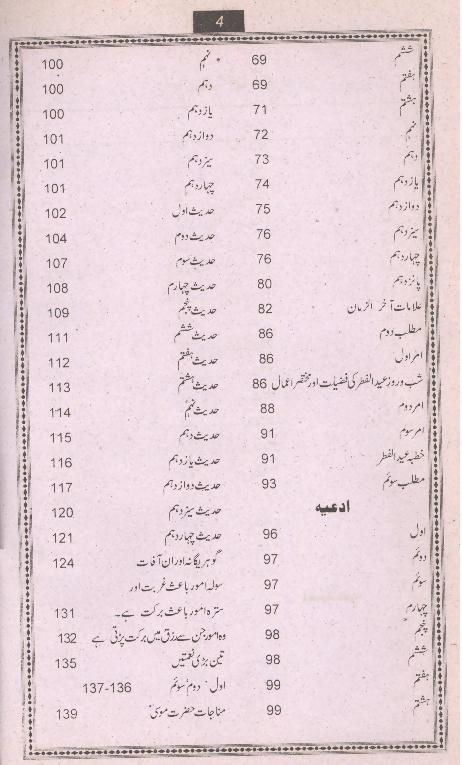 4
ششم 69
ہفتم 69
ہشتم 71
نہم 72
دہم 73
یازدہم 74
دوازدہم 75
سیزدہم 76
چہاردہم 76
پانزدہم 80
علامات آخر الزمان 82
مطلب دوم 86
امر اول 86
شب و روز عید الفطر کی فضیلت اور مختصر اعمال 86
امر دوم 88
امر سوم 91
خطبہ عید الفطر 91
مطلب سوئم 93
ادعیہ
اول 96
دوئم 97
سوئم 97
چہارم 97
پنجم 98
ششم 98
ہفتم 99
ہشتم 99
نہم 100
دہم 100
یازدہم 100
دوازدہم 101
سیزدہم 101
چہاردہم 101
حدیث اول 102
حدیث دوم 104
حدیث سوم 107
حدیث چہارم 108
حدیث پنجم 109
حدیث ششم 111
حدیث ہفتم 112
حدیث ہشتم 113
حدیث نہم 114
حدیث دہم 115
حدیث یازدہم 116
حدیث دوازدہم 117
حدیث سیزدہم 120
حدیث چہاردہم 121
گوہر یگانہ اور ان آفات 124
سولہ امور باعث غربت اور
سترہ امور باعث برکت ہے۔ 131
وہ امور جن سے رزق میں برکت پڑتی ہے 132
تین بڑی نعمتیں 135
اول، دوم، سوئم 136-137
مناجات حضرت موسیٰ 139